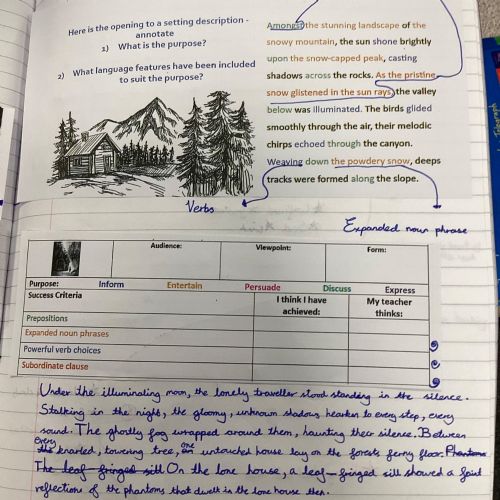 Here is the opening to a setting description -
annotate
1) What is the purpose?
2) What language features have been included
to suit the purpose?
Amongst the stunning landscape of the
snowy mountain, the sun shone brightly
upon the snow-capped peak, casting
shadows across the rocks. As the pristine
snow glistened in the sun rays, the valley
below was illuminated. The birds glided
smoothly through the air, their melodic
chirps echoed through the canyon.
Weaving down the powdery snow, deeps
tracks were formed along the slope.
Verbs
Expanded noun phrase
Audience: Viewpoint: Form:
Purpose: Inform Entertain Persuade Discuss Express
Success Criteria I think I have achieved: My teacher thinks:
Prepositions
Expanded noun phrases
Powerful verb choices
Subordinate clause
Under the illuminating moon, the lonely traveller stood standing in the silence.
Stalking in the night, the gloomy, unknown shadows hearken to every step, every
sound. The ghostly fog wrapped around them, haunting their silence. Between
every knarled, towering tree, one untouched house lay on the forests ferny floor. Phantoms
The leaf-fringed sill On the lone house, a leaf-fringed sill showed a faint
reflection of the phantoms that dwelt in the lone house then.